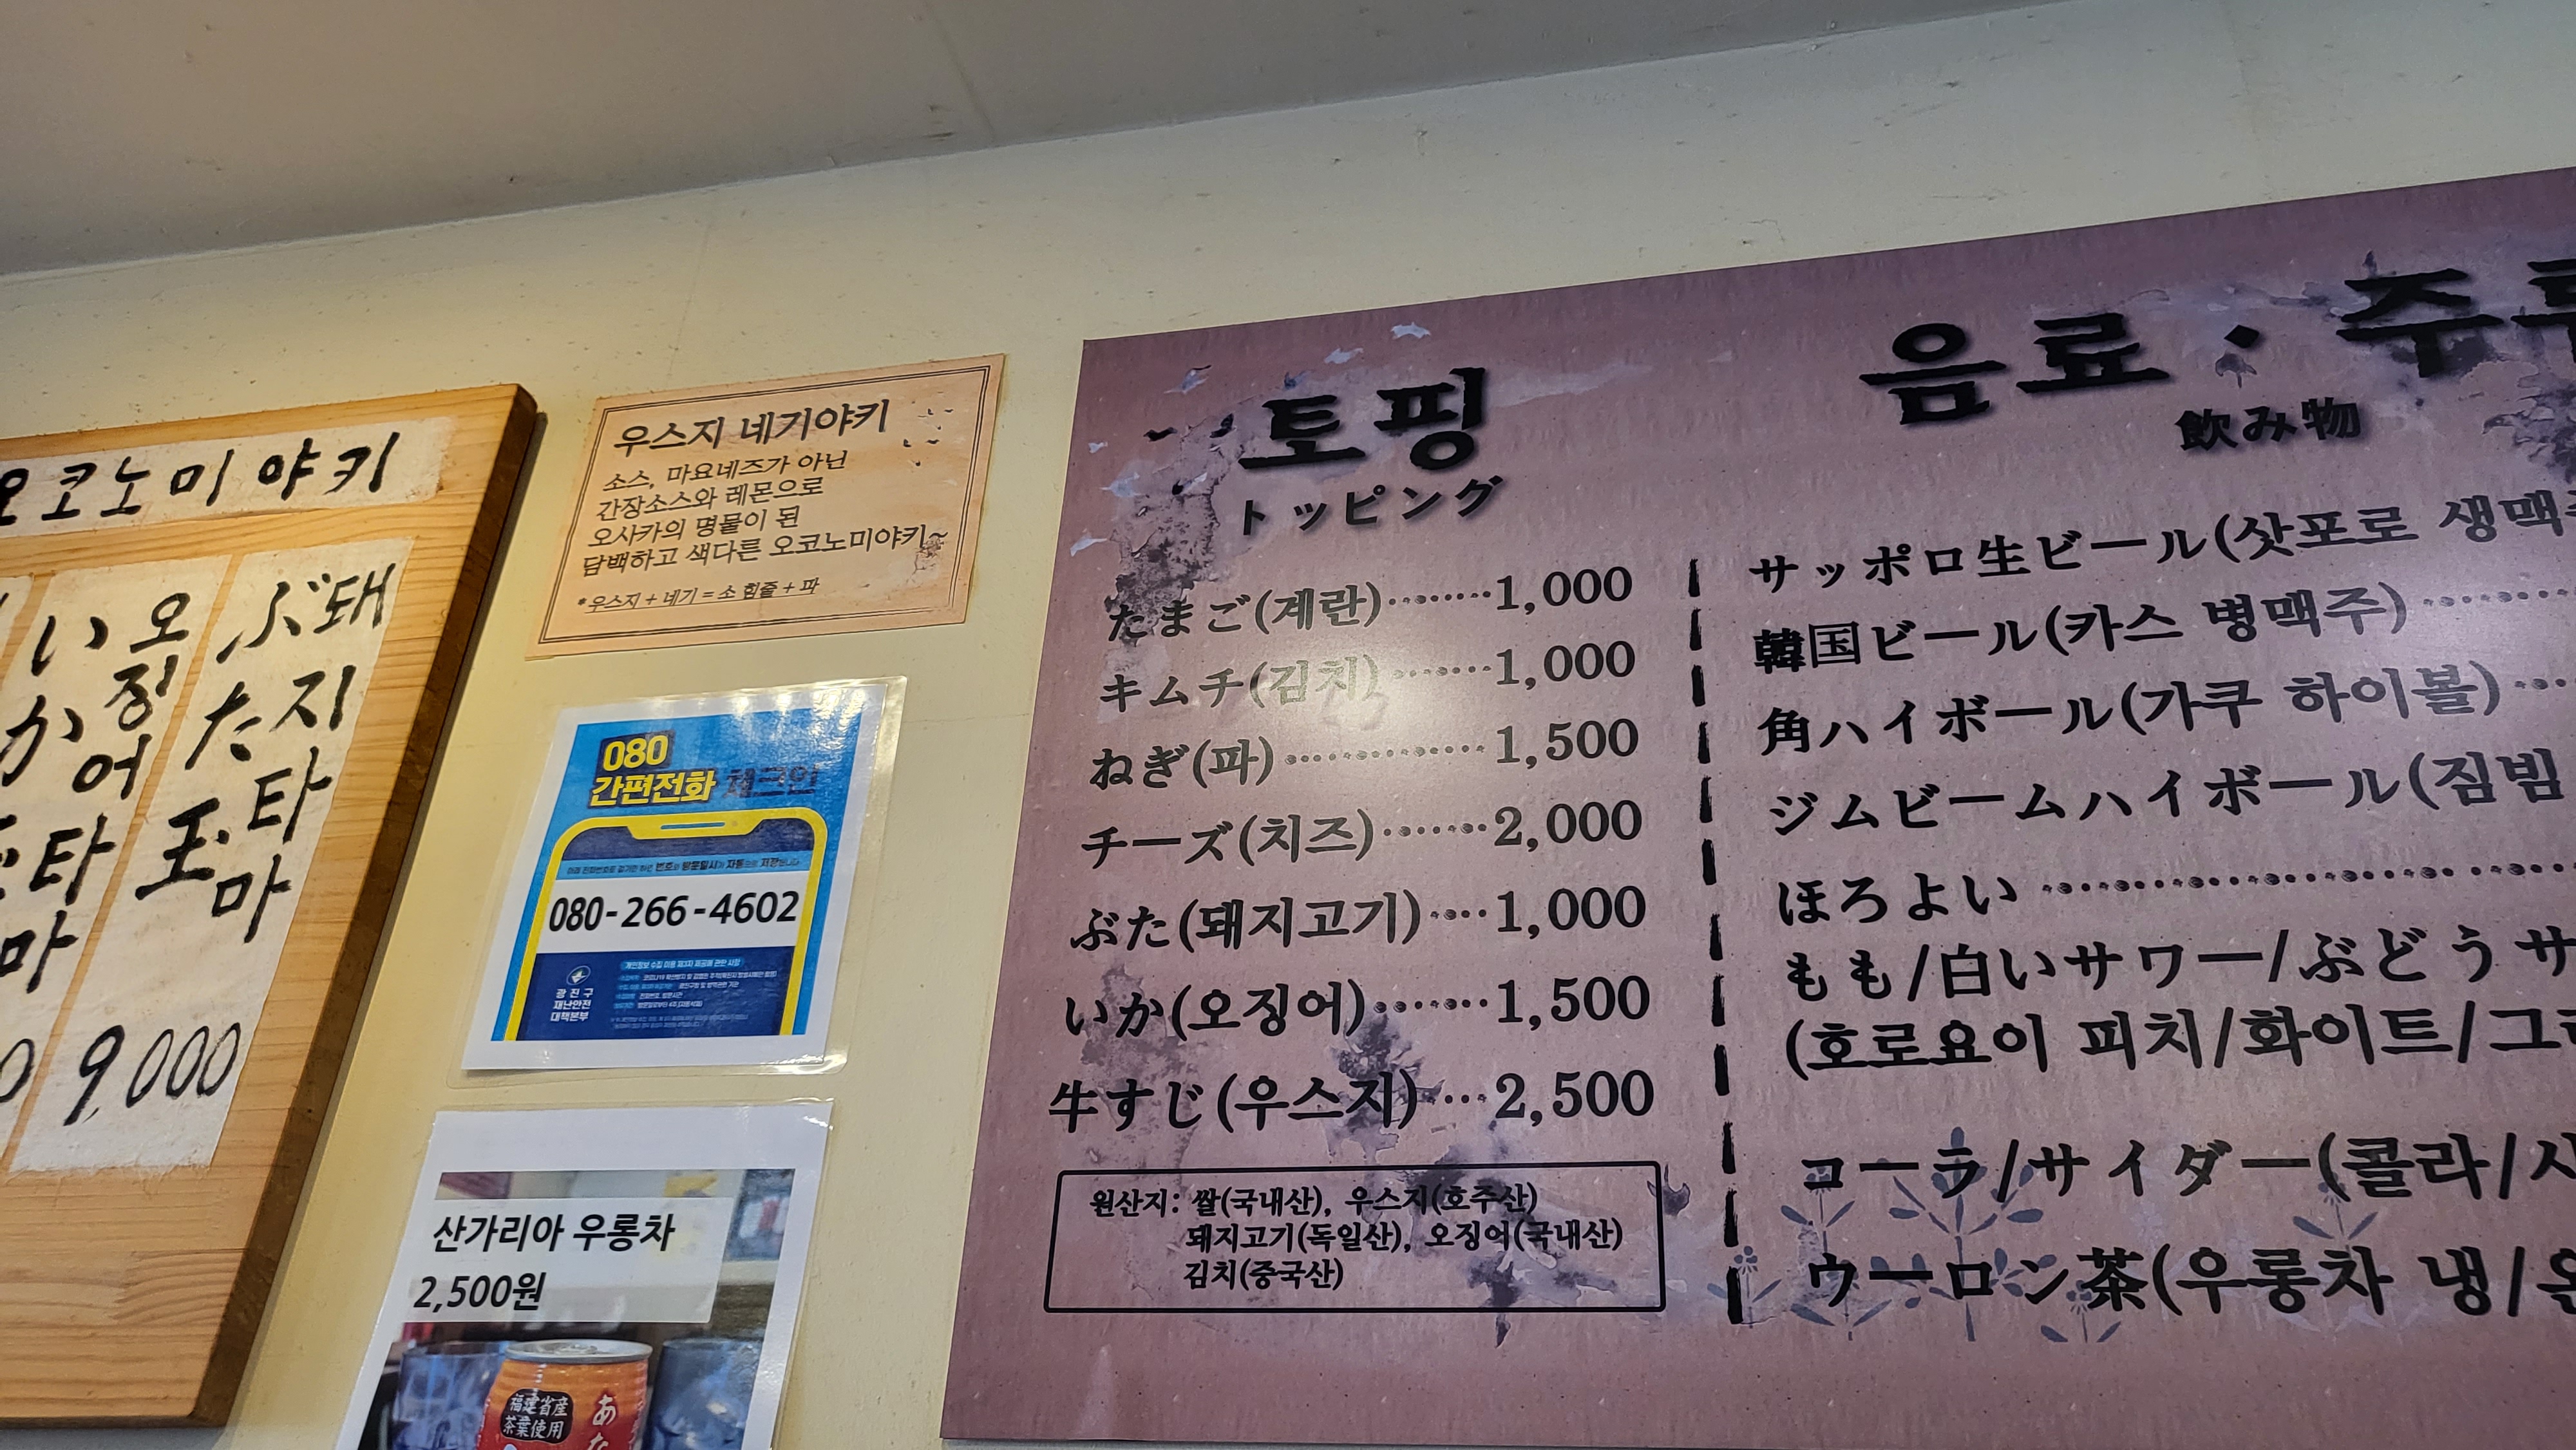 오코노미야키
ぶた玉
돼지타마
9,000
いか
오징어타마
0
우스지 네기야키
소스, 마요네즈가 아닌
간장소스와 레몬으로
오사카의 명물이 된
담백하고 색다른 오코노미야키~
*우스지+네기=소 힘줄+파
080
간편전화 체크인
080-266-4602
광진구
재난안전
대책본부
산가리아 우롱차
2,500원
福建省産
茶葉使用
あ
토핑
トッピング
たまご(계란)········1,000
キムチ(김치)·······1,000
ねぎ(파)··············1,500
チーズ(치즈)·······2,000
ぶた(돼지고기)····1,000
いか(오징어)·······1,500
牛すじ(우스지)···2,500
원산지: 쌀(국내산), 우스지(호주산)
돼지고기(독일산), 오징어(국내산)
김치(중국산)
음료·주
飲み物
サッポロ生ビール(삿포로 생맥
韓国ビール(카스 병맥주)
角ハイボール(가쿠 하이볼)
ジムビームハイボール(짐빔
ほろよい
もも/白いサワー/ぶどうサ
(호로요이 피치/화이트/그
コーラ/サイダー(콜라/사
ウーロン茶(우롱차 냉/온